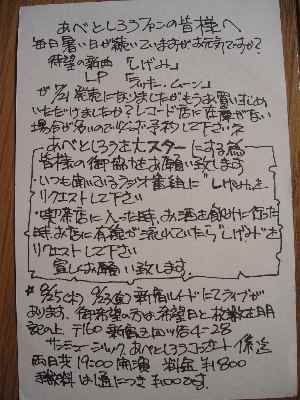 あべとしろうファンの皆様へ
毎日暑い日が続いていますがお元気ですか?
待望の新曲 「しげみ」
LP 「ラッキー・ムーン」
が 7/21 発売になりましたがもうお買いもとめ
いただけましたか?レコード店に在庫がない
場合が多いので必ず予約して下さい
あべとしろうを大スターにする為
皆様の御協力をお願い致します
・いつも聞いているラジオ番組に"しげみ"を
リクエストして下さい
・喫茶店に入った時、お酒を飲みに行った
時、お店に有線が流れていたら"しげみ"を
リクエストして下さい
宜しくお願い致します
8/25(水) 9/23(金) 新宿ルイードにてライブが
あります、御希望の方は希望日と枚数を明
記の上 〒160 新宿 4-28
サンミュージック あべとしろうコンサート 係迄
両日共 19:00 開演 料金 ¥1800
手数料は1通につき ¥100です。